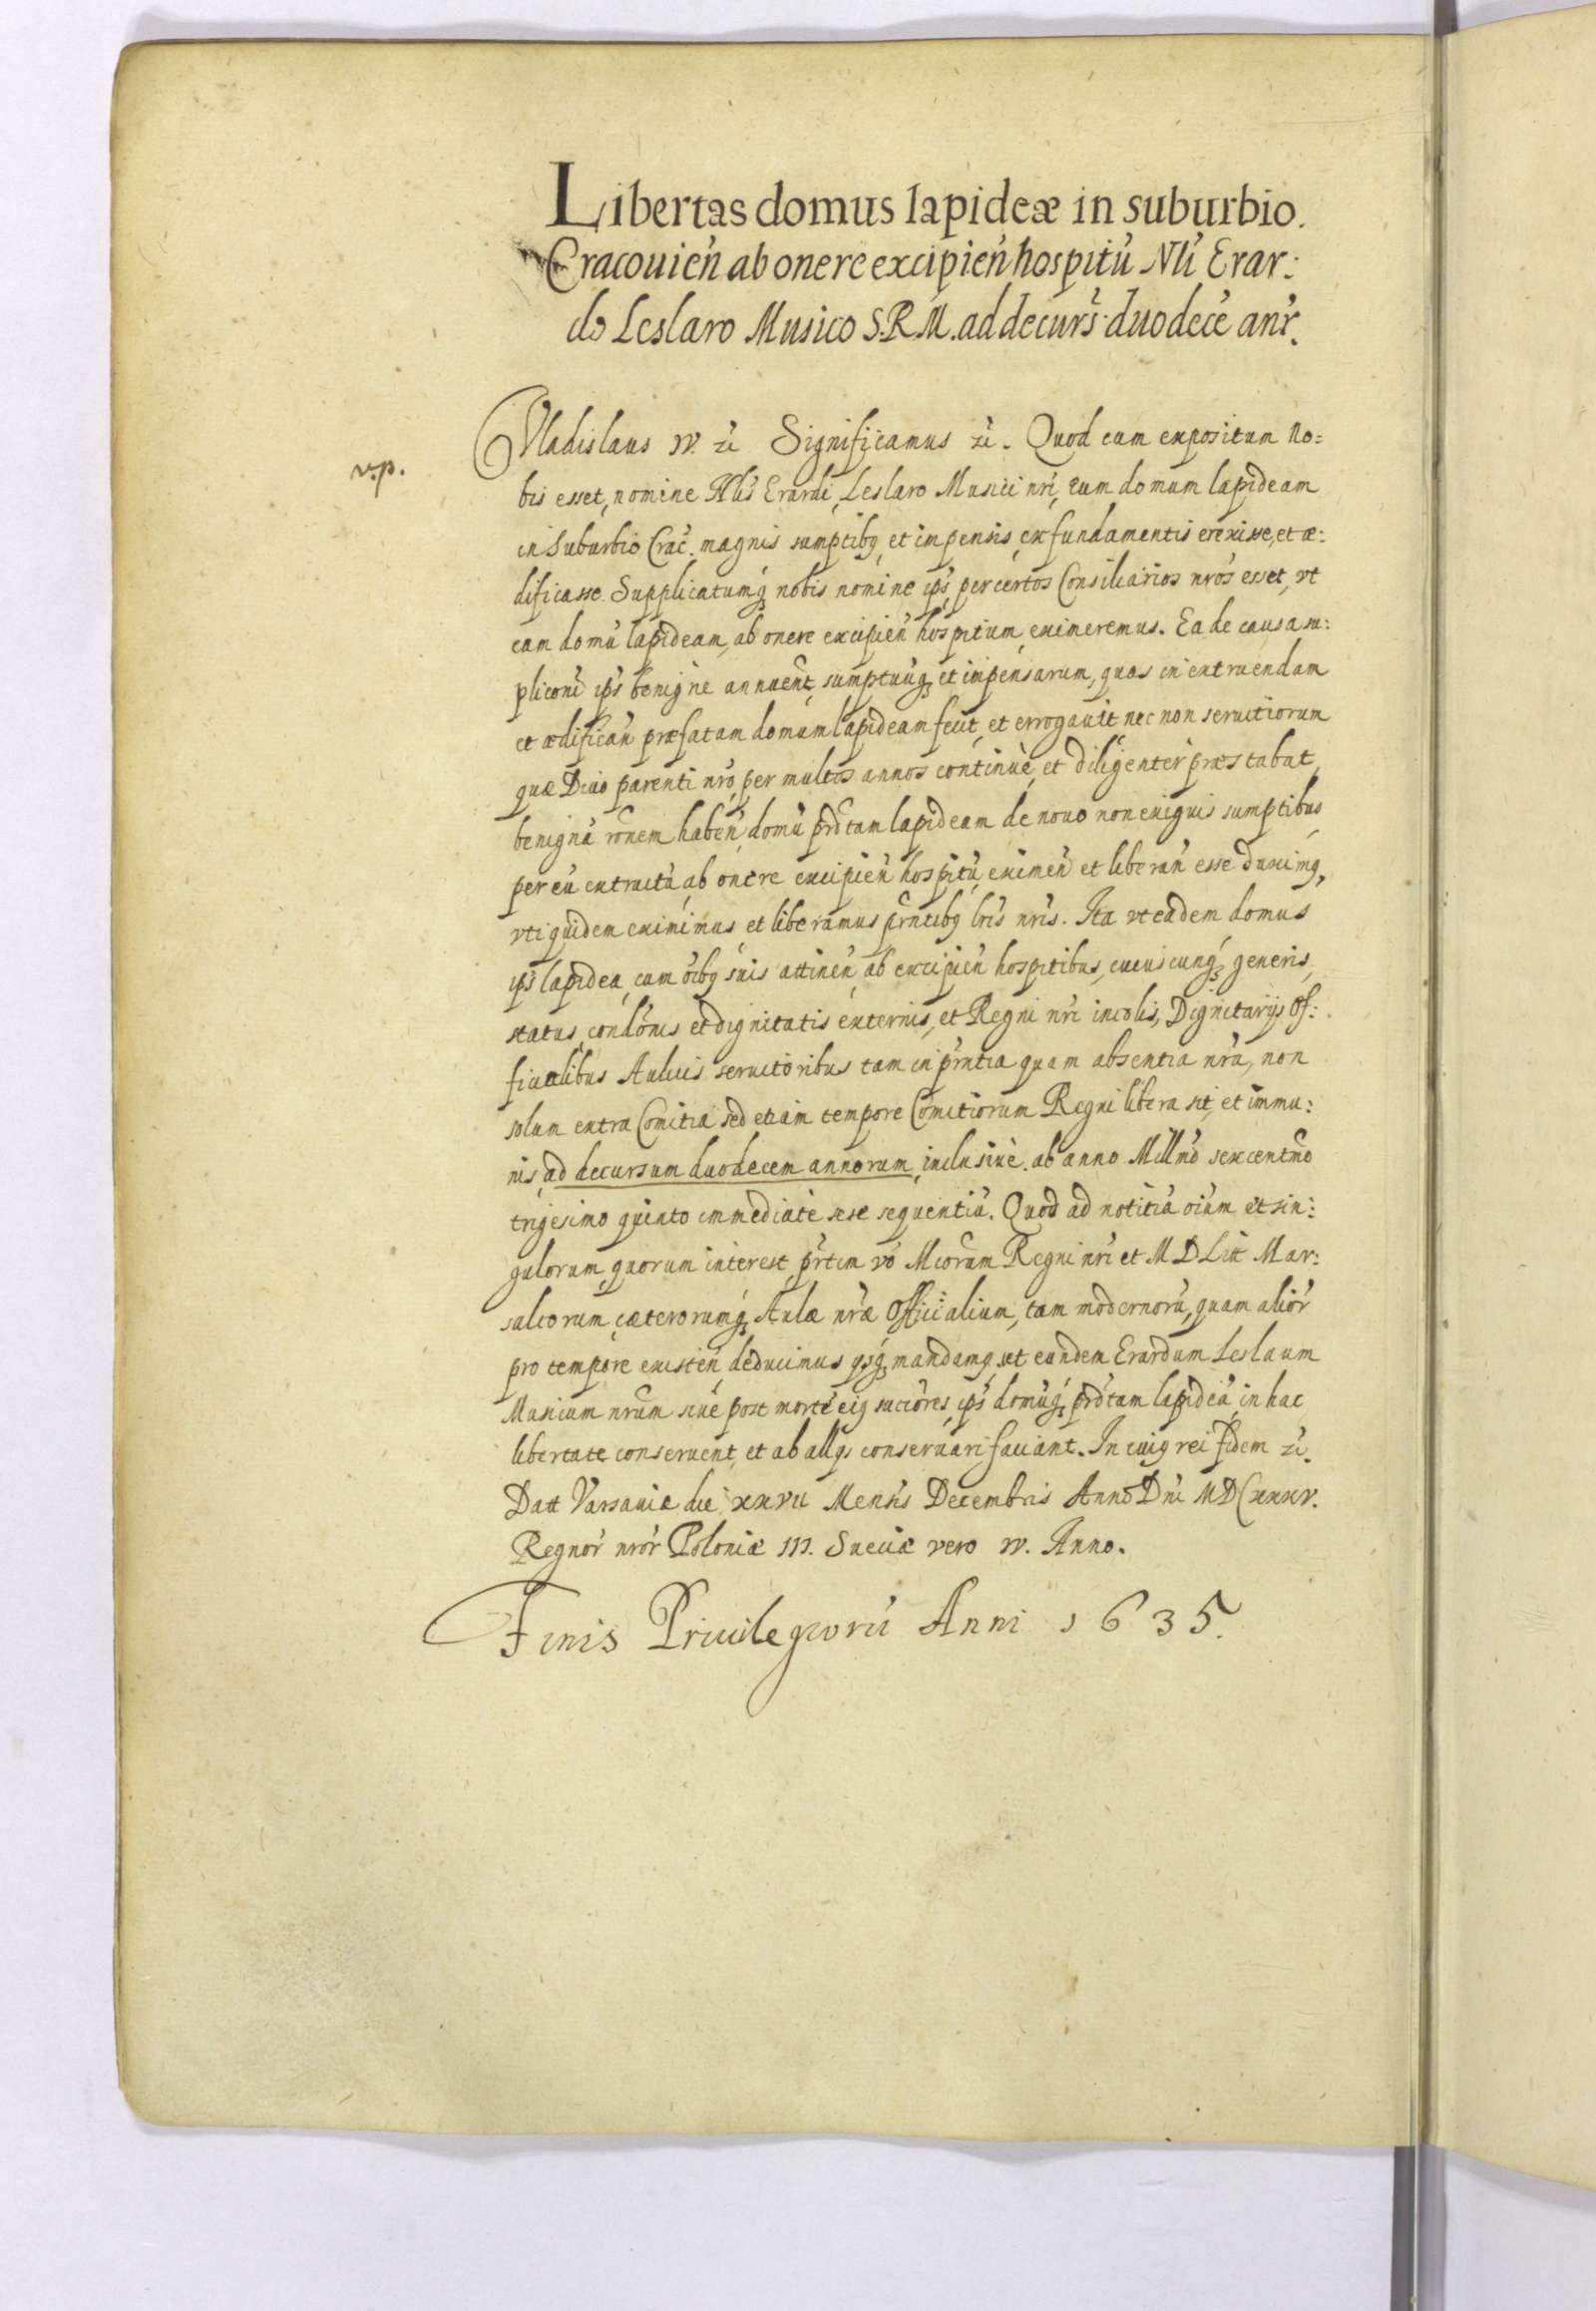 Libertas domus lapideæ in suburbio.
Cracouien̄ ab onere excipien̄ hospitū Nli Erar:
do Leslaro Musico S.R.M. ad decurs̄ duodecē anr̄.
Vladislaus IV. zc̄ Significamus zc̄. Quod cum expositum no:
v.p.
bis esset, nomine Nlis Erardi Leslaro Musici nr̄i, eum domum lapideam
in suburbio Crac̄. magnis sumptibq et impensis, ex fundamentis erexisse, et æ:
dificasse. Supplicatumq nobis nomine ips̄ per certos Consiliarios nr̄os esset, vt
eam domū lapideam, ab onere excipien̄ hospitum, eximeremus. Ea de causa su:
pliconi ips̄ benigne annuent̄, sumptuūq et inpensarum, quas in extruendam
et ædifican̄ præfatam domum lapideam fecit, et errogauit nec non seruitiorum
quæ Diuo parenti nr̄o, per multos annos continuè, et diligenter præstabat,
benignā rōnem haben̄, domū prd̄ctam lapideam de nouo non exiguis sumptibus
per eū extructā ab onere excipien̄ hospitū eximen̄ et liberan̄ esse duximq,
vti quidem eximimus et liberamus prn̄tibq lr̄is nr̄is. Ita vt eadem domus
ips̄ lapidea, cum oībq suis attinen̄ ab excipien̄ hospitibus, cuiuscunq generis,
status, condōnis et dignitatis externis, et Regni nr̄i incolis, Dignitarijs Of:
ficialibus Aulicis seruitoribus tam in prn̄tia quam absentia nr̄a, non
solum extra Comitia sed etiam tempore Comitiorum Regni libera sit, et immu:
nis, ad decursum duodecem annorum, inclusiuè. ab anno Milln̄o sexcentm̄o
trigesimo quinto immediatè sese sequentiū. Quod ad notitiā oīum et sin:
gulorum, quorum interest prt̄im vō Mcorum Regni nr̄i et M D Litt Mar:
salcorum, cæterorumq Aulæ nr̄æ Officialium, tam modernorū, quam alior̄
pro tempore existen̄ deducimus ysq mandamq vt eundem Erardum Leslaum
Musicum nrūm siue post mortē eiq succōres, ips̄ domūq, prd̄ctam lapideā in hac
libertate conseruent, et ab alijs conseruari faciant. In cuiq rei fidem zc̄.
Datt Varsauiæ die xxvii Mensis Decembris Anno Dn̄i MDCxxxv.
Regnor̄ nr̄or̄ Poloniæ III. Sueciæ vero IV. Anno.
Finis Priuilegiorū Anni 1635.